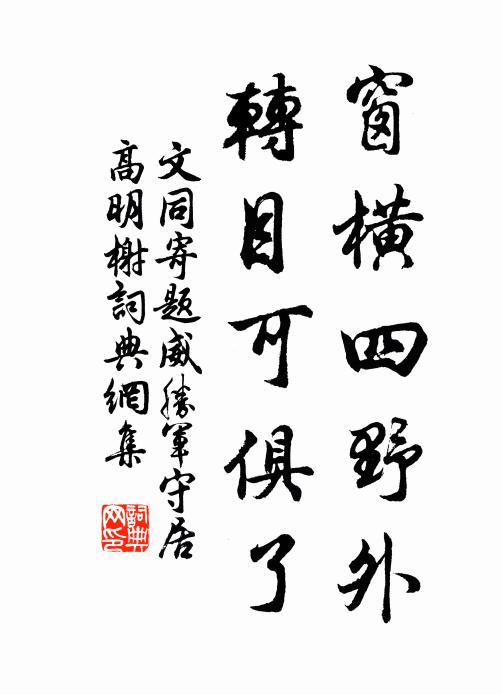 窗橫四野外
轉目可俱了
文同寄题威勝軍守居
高明榭詞典網集
詞典网印